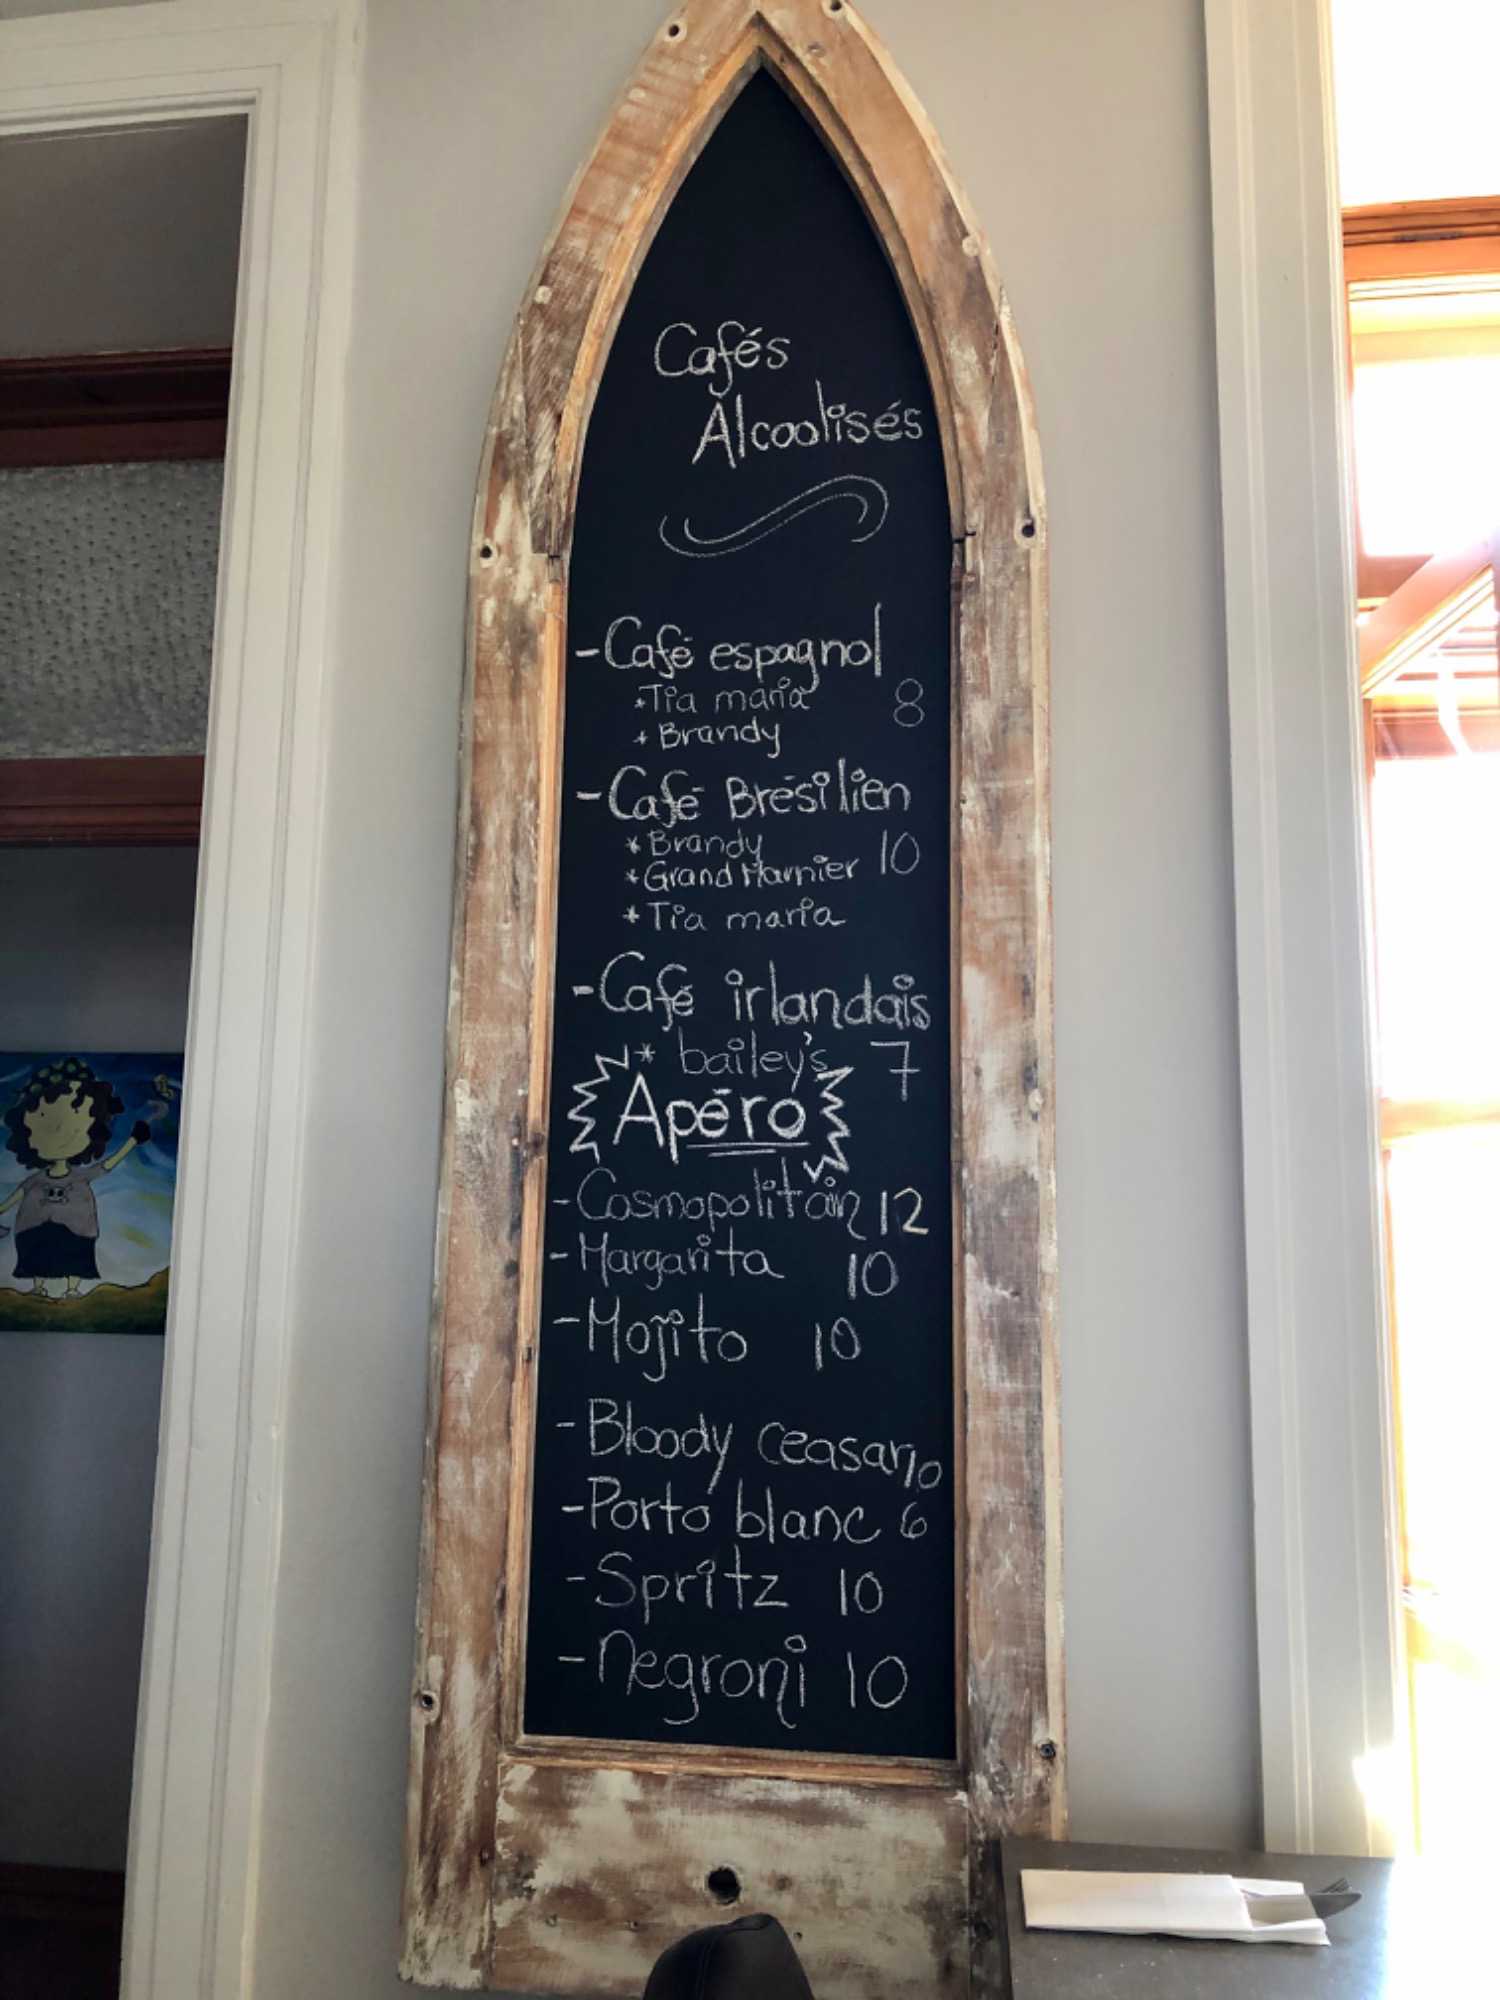 Cafés
Alcoolisés
- Café espagnol
* Tia maria 8
* Brandy
- Café Brésilien
* Brandy 10
* Grand Marnier
* Tia maria
- Café irlandais
* bailey's 7
Apéro
- Cosmopolitain 12
- Margarita 10
- Mojito 10
- Bloody ceasar 10
- Porto blanc 6
- Spritz 10
- Negroni 10